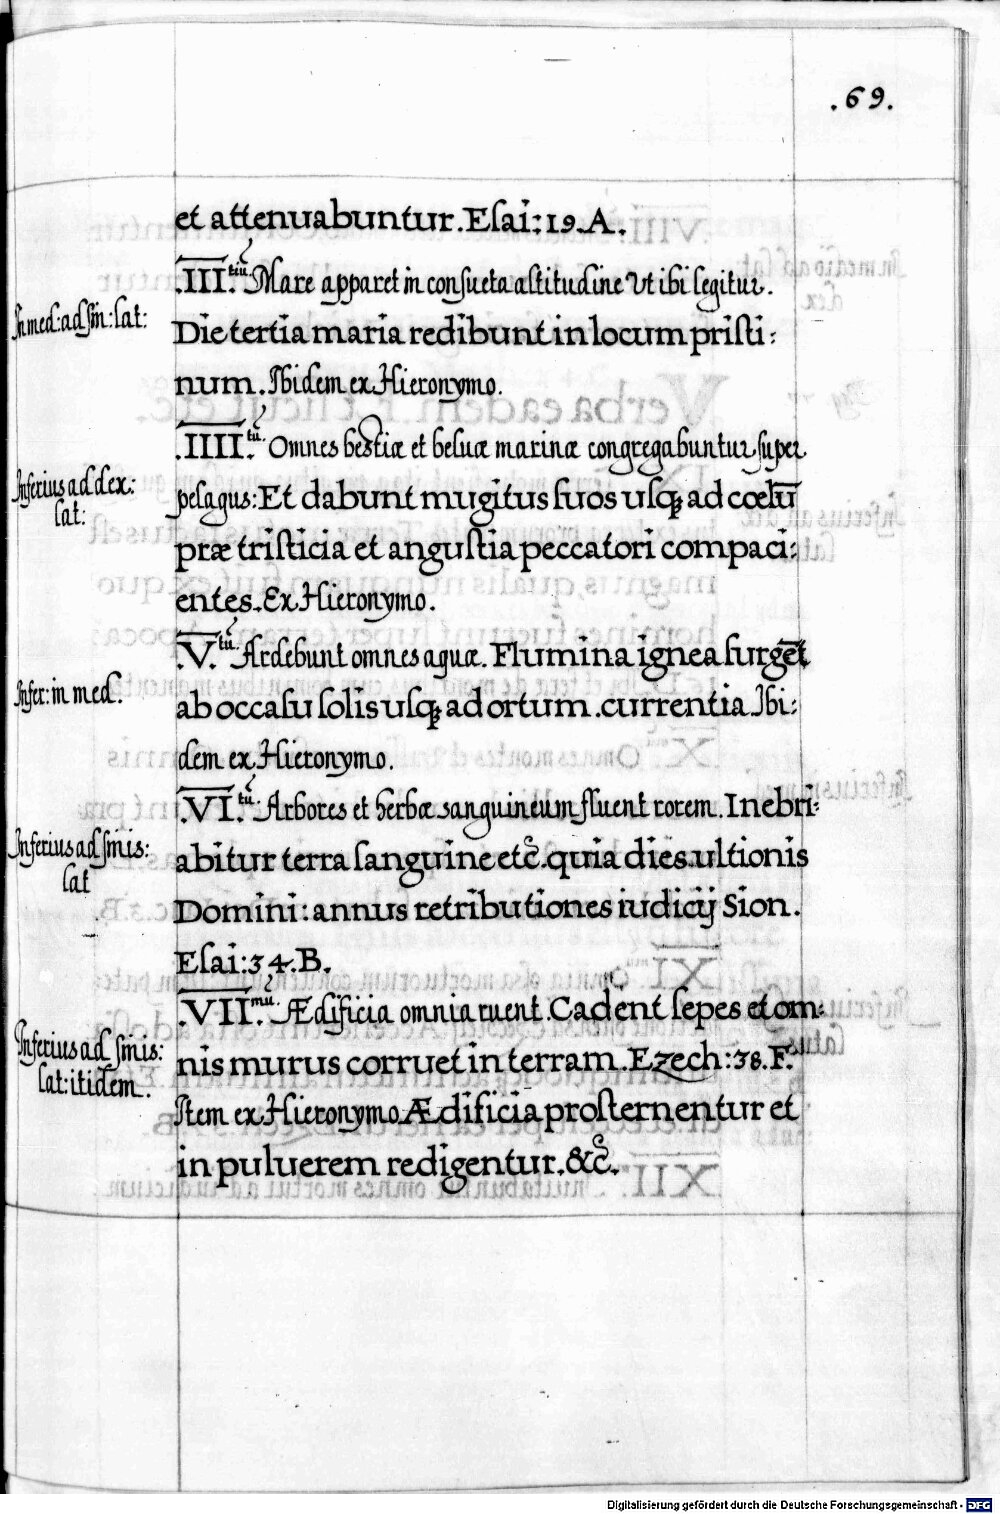 .69.
et attenuabuntur. Esai: 19. A.
.III.tiū Mare apparet in consueta altitudine Ut ibi legitur.
In med: ad sin: lat:
Die tertia maria redibunt in locum pristi:
num. Ibidem ex Hieronymo.
.IIII.tū Omnes bestiæ et beluæ marinæ congregabuntur super
Inferius ad dex:
lat:
pelagus: Et dabunt mugitus suos usq; ad cœlū
præ tristicia et angustia peccatori compaci:
entes. Ex Hieronymo.
.V.tū Ardebunt omnes aquæ. Flumina ignea surgēt
Infer: in med.
ab occasu solis usq; ad ortum. currentia Ibi:
dem ex Hieronymo.
.VI.tū Arbores et herbæ sanguineum fluent rorem. Inebri:
Inferius ad sinis:
lat
abitur terra sanguine etc̄. quia dies ultionis
Domini: annus retributiones iudicij Sion.
Esai: 34. B.
.VII.mū. Ædificia omnia ruent. Cadent sepes et om:
Inferius ad sinis:
lat: itidem.
nis murus corruet in terram. Ezech: 38. F.
Item ex Hieronymo Ædificia prosternentur et
in puluerem redigentur. &c̄.
Digitalisierung gefördert durch die Deutsche Forschungsgemeinschaft - DFG